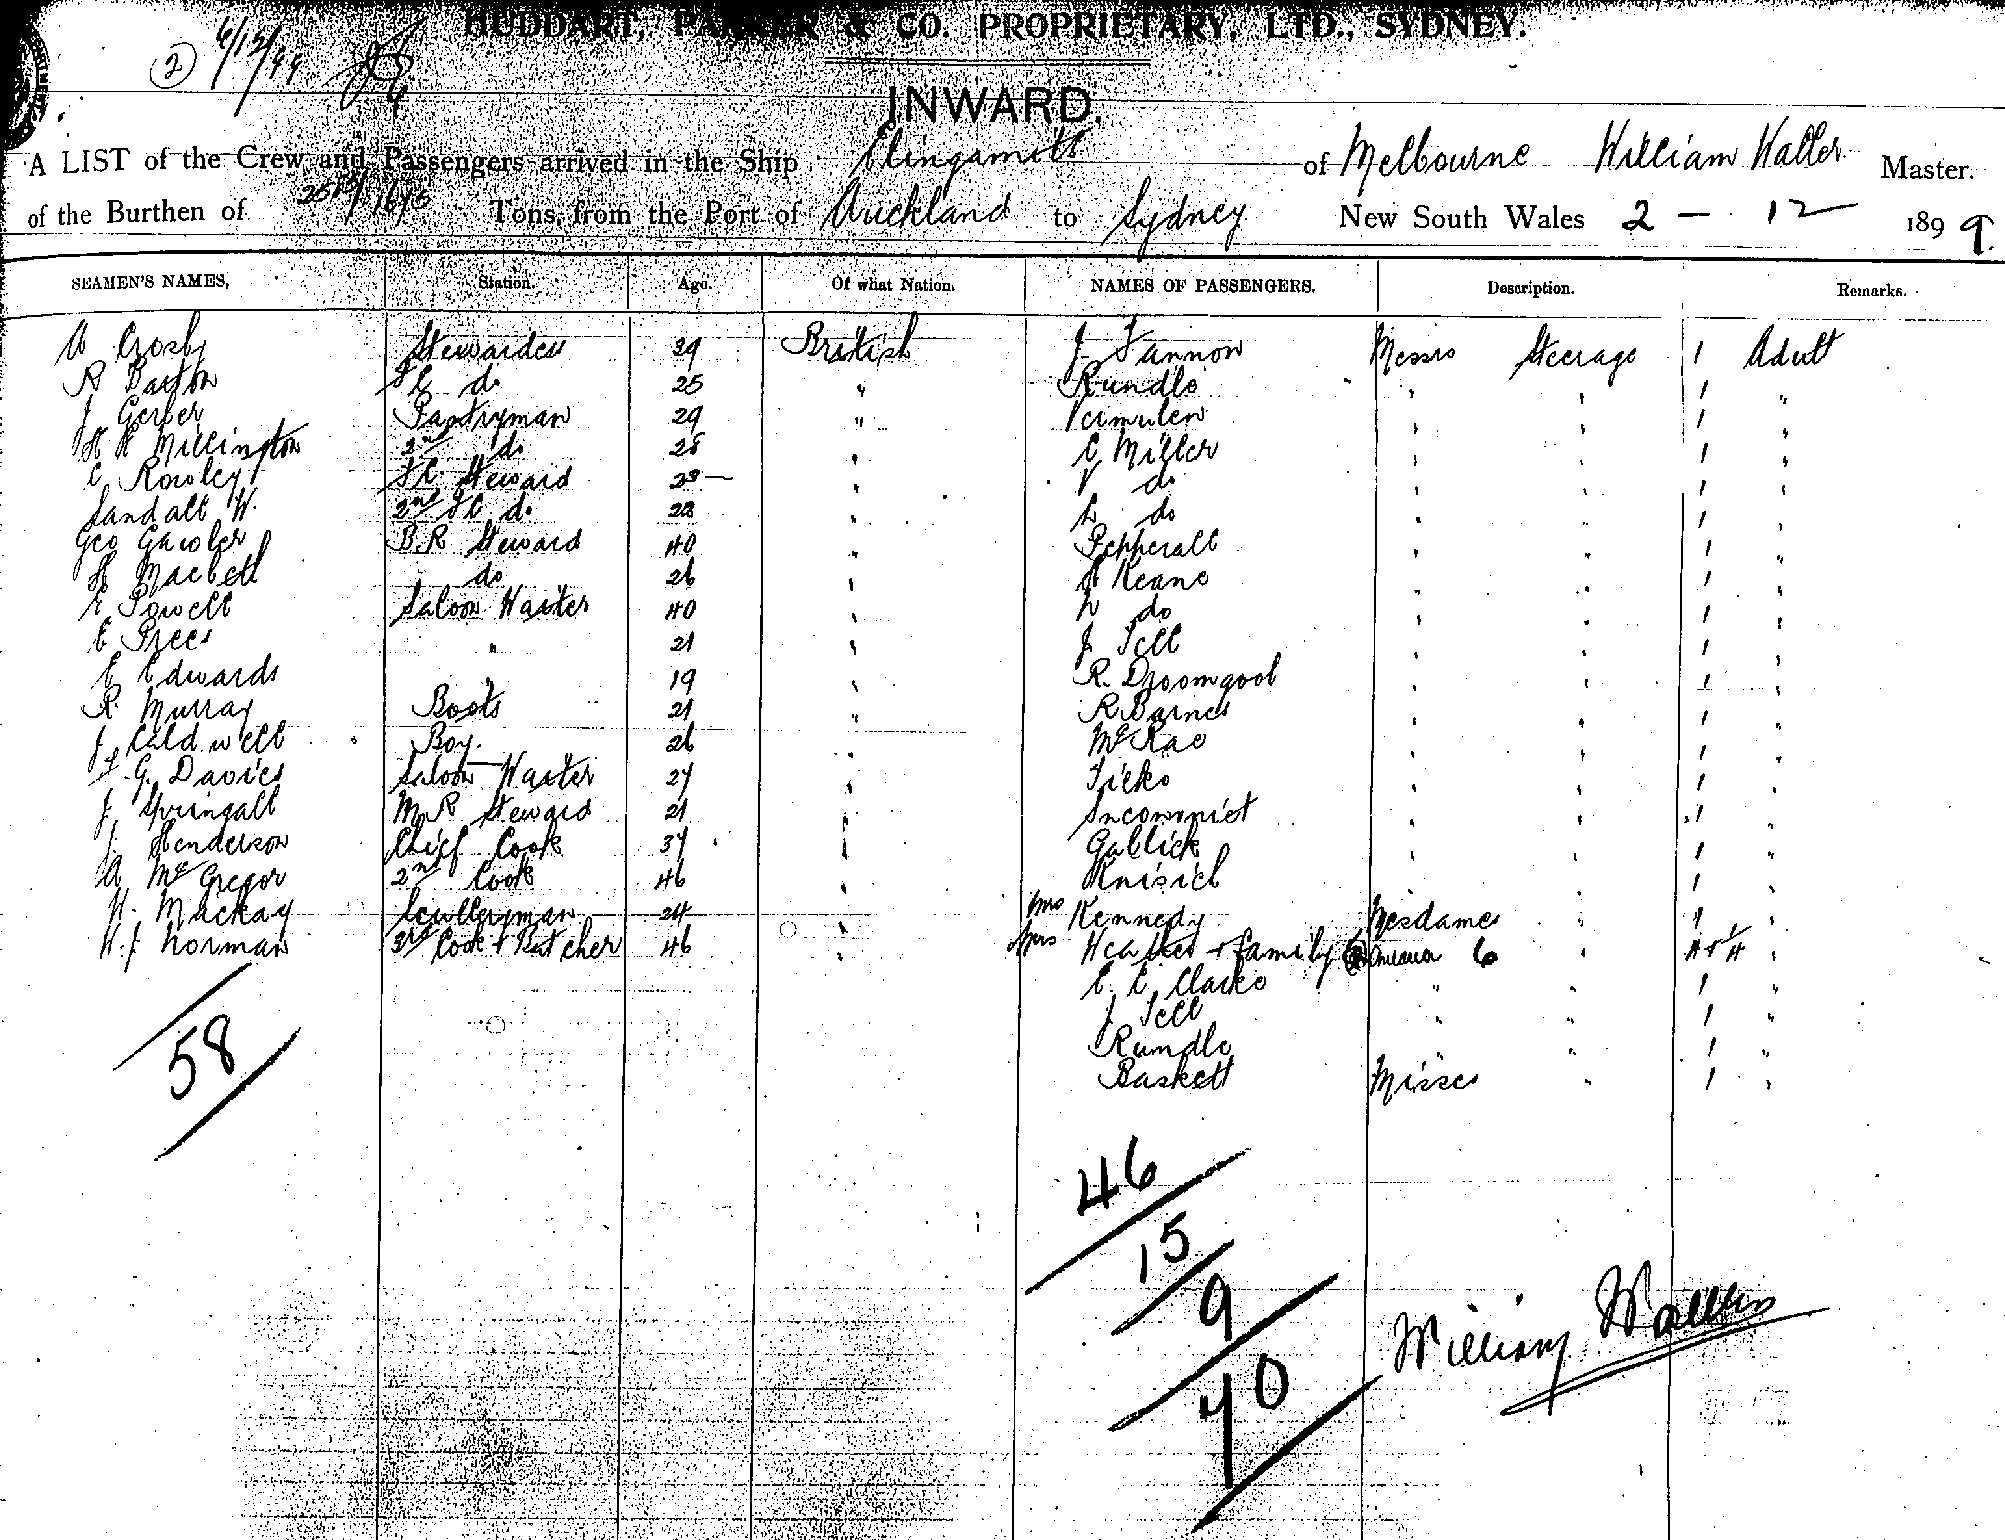 HUDDART, PARKER & CO. PROPRIETARY, LTD., SYDNEY.
2 6/12/99
INWARD.
A LIST of the Crew and Passengers arrived in the Ship Elingamite of Melbourne William Waller Master.
of the Burthen of Tons, from the Port of Auckland to Sydney New South Wales 2 - 12 1899.
SEAMEN'S NAMES, Station. Age. Of what Nation. NAMES OF PASSENGERS. Description. Remarks.
Crosby Stewardess 39 British J. Fannon Messrs Steerage 1 Adult
R Barton do 25 " Rundle " " 1 "
J Gerber Pantryman 29 " Vermulen " " 1 "
H H Millington 2nd do 28 " C Miller " " 1 "
C Rowley Steward 23 " V do " " 1 "
Sandall W. 2nd do 22 " L do " " 1 "
Geo Gawler B.R Steward 40 " Pepperall " " 1 "
H Macbeth do 26 " Keane " " 1 "
E Powell Saloon Waiter 40 " do " " 1 "
E Prees " 21 " J Tell " " 1 "
E Edwards " 19 " R. Droomgool " " 1 "
R. Murray Boots 21 " R Barnes " " 1 "
J Caldwell Boy. 26 " McRae " " 1 "
G. Davies Saloon Waiter 27 " " " 1 "
J Springall M.R Steward 21 " " " 1 "
J. Henderson Chief Cook 37 " Gablick " " 1 "
A McGregor 2nd Cook 46 " " " 1 "
W. Mackay Sculleryman 24 " Mrs Kennedy Mesdames " 1 "
W.J Norman 3rd Cook & Butcher 46 " Mrs + family 6 " "
E. E. Clarke " " 1 "
J Tell " " 1 "
Rundle " " 1 "
Baskett Misses " 1 "
58
46
15
9
70
William Waller